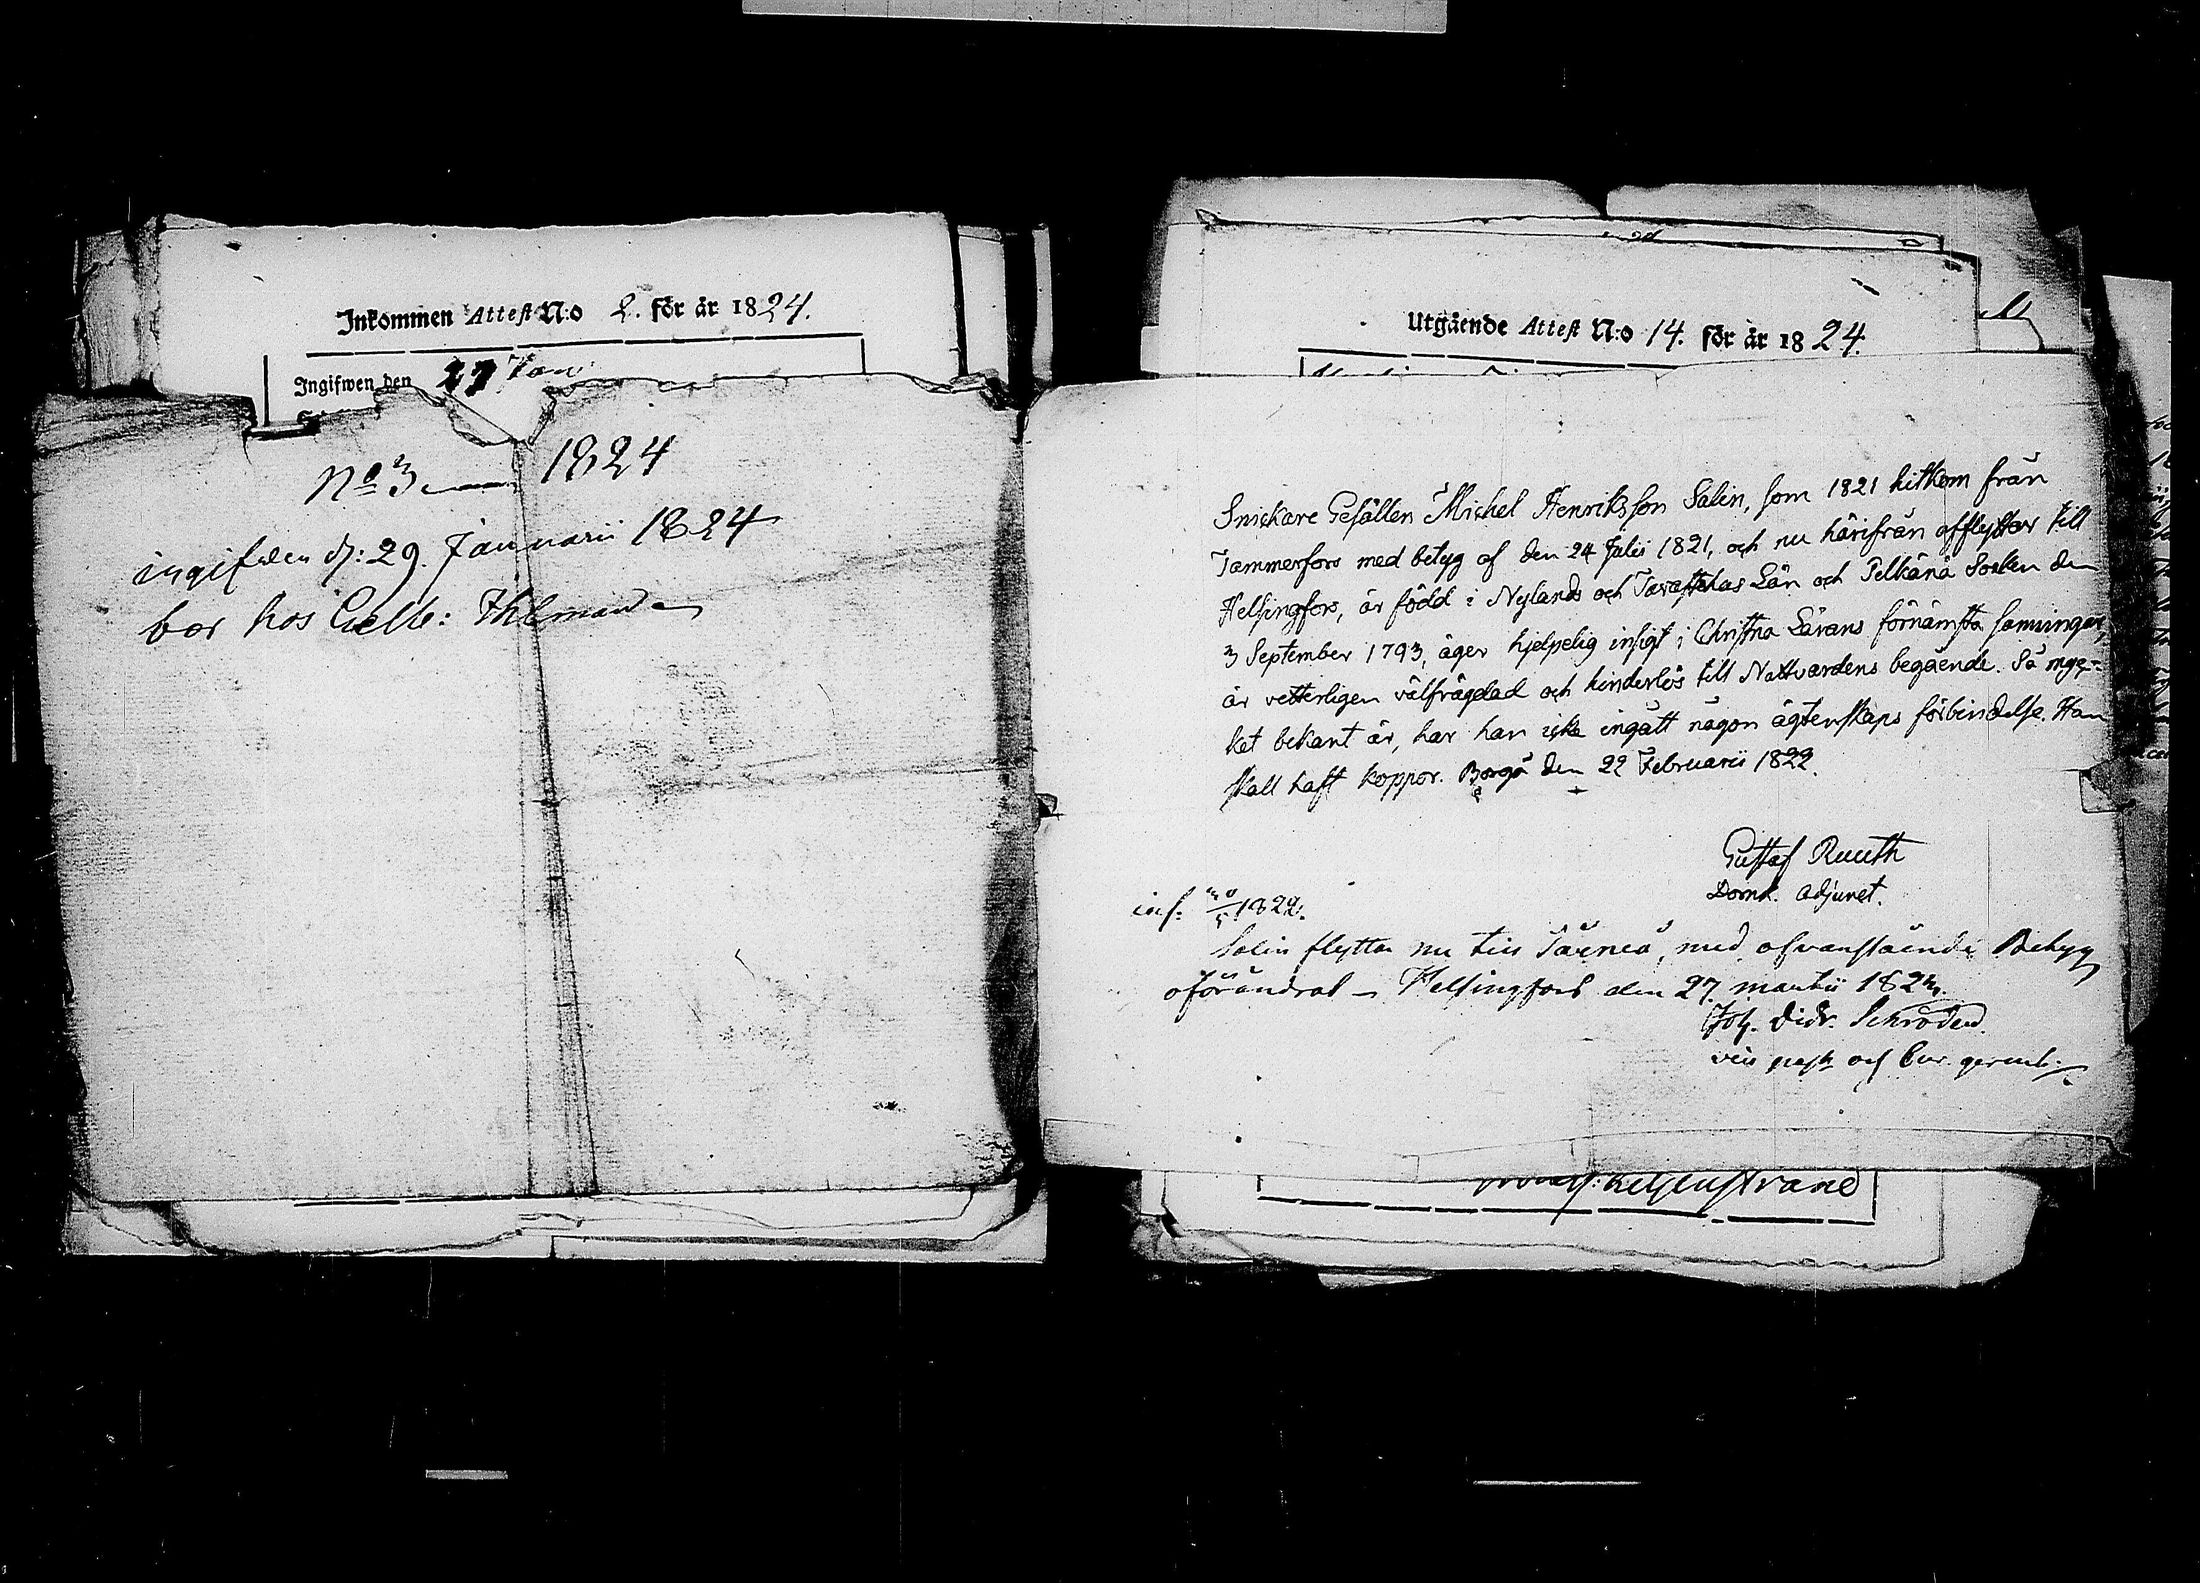 Inkommen Attest N:o 2. för år 1824.
Ingifwen den 27 Jan:
No 3 1824
ingifven d: 29. Januarii 1824
bor hos Gelb: Thilman
Utgående Attest N:o 14. för år 1824.
Snickare Gesällen Michel Henriksson Salin, som 1821 hitkom från
Tammerfors med betyg af den 24 Julii 1821, och nu härifrån afflyttar till
Helsingfors, är född i Nylands och Tavastehus Län och Pelkänä Socken den
3 September 1793, äger hjelpelig insigt i Christna Lärans förnämsta sanningar,
är vetterligen välfrägdad och hinderlös till Nattvardens begående. Så myc-
ket bekant är, har han icke ingått någon ägtenskaps förbindelse. Han
skall haft koppor. Borgå den 22 Februarii 1822.
Gustaf Ruuth
Domk. Adjunct.
inf. 1822.
Salin flyttar nu till Torneå, med ofvanstående Betyg
oförändrat – Helsingfors den 27 martii 1823.
Joh. Didr. Schroder.
vice past och Cur. gerent: